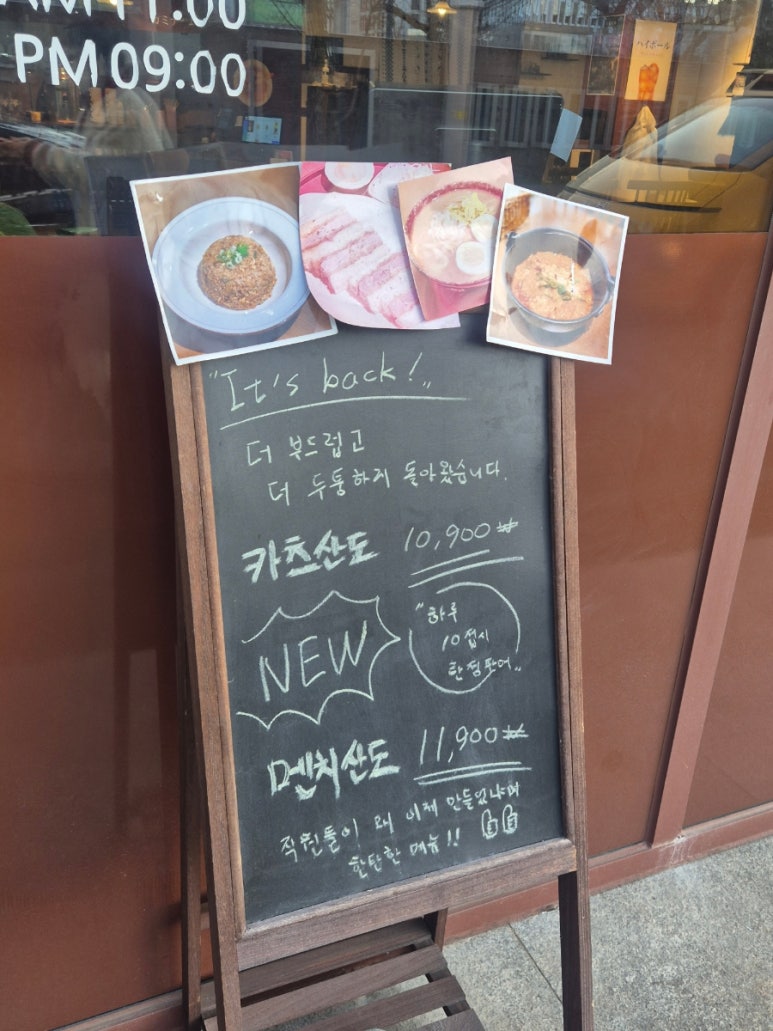 AM 11:00
PM 09:00
ハイボール
"It's back!„
더 부드럽고
더 두툼하게 돌아왔습니다.
카츠산도 10,900₩
NEW
"하루
10접시
한정판매„
멘치산도 11,900₩
직원들이 왜 이제 만들었냐며
한탄한 메뉴!!